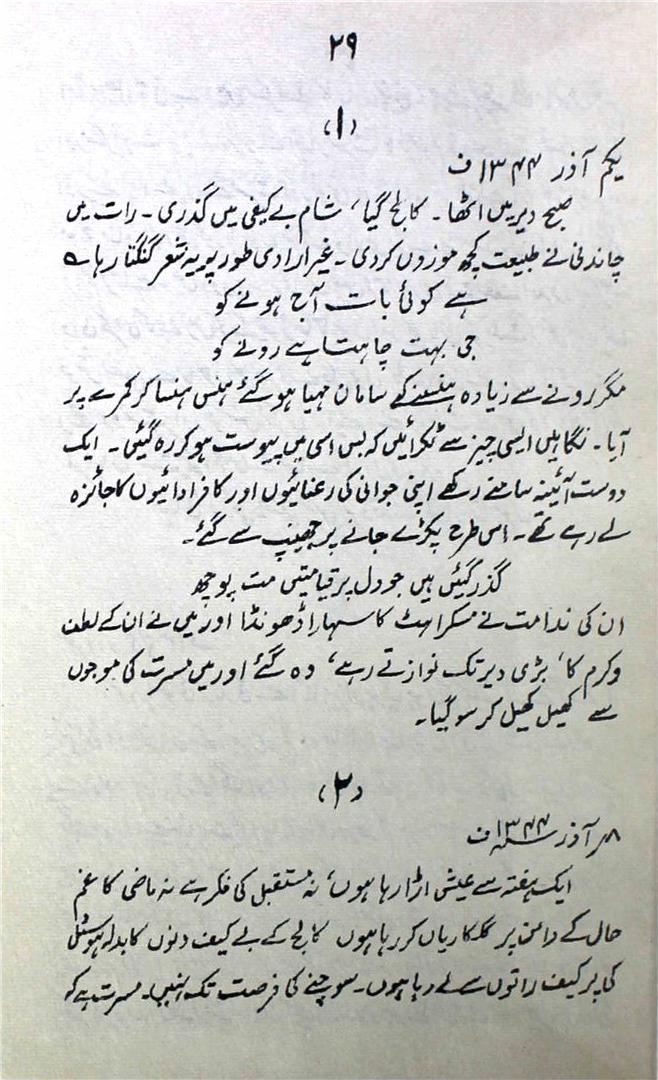 ۲۹
(۱)
یکم آذر ۱۳۴۴ ف
صبح دیر میں اٹھا ۔ کالج گیا ، شام بے کیفی میں گذری ۔ رات میں
چاندنی نے طبیعت کچھ موزوں کردی ۔ غیر ارادی طور پر یہ شعر گنگنا رہا ؎
ہے کوئی بات آج ہونے کو
جی بہت چاہتا ہے رونے کو
مگر رونے سے زیادہ ہنسنے کے سامان مہیا ہو گئے ہنس ہنسا کر کمرے پر
آیا ۔ نگاہیں ایسی چیز سے ٹکرائیں کہ بس اسی میں پیوست ہو کر رہ گئیں ۔ ایک
دوست آئینہ سامنے رکھے اپنی جوانی کی رعنائیوں اور کافر ادائیوں کا جائزہ
لے رہے تھے ۔ اس طرح پکڑے جانے پر جھینپ سے گئے ۔
گذر گئیں ہیں جو دل پر قیامتیں مت پوچھ
ان کی ندامت نے مسکراہٹ کا سہارا ڈھونڈا اور میں نے ان کے لطف
وکرم کا ، بڑی دیر تک نوازتے رہے ، وہ گئے اور میں مسرت کی موجوں
سے کھیل کھیل کر سو گیا ۔
(۲)
۸؍ آذر ۱۳۴۴ ف
ایک ہفتہ سے عیش اڑا رہا ہوں ، نہ مستقبل کی فکر ہے نہ ماضی کا غم
حال کے دامن پر گلکاریاں کر رہا ہوں کالج کے بے کیف دنوں کا بدلہ ہوسٹل
کی پر کیف راتوں سے لے رہا ہوں ۔ سوچنے کی فرصت تک نہیں ۔ مسرت ہے کہ